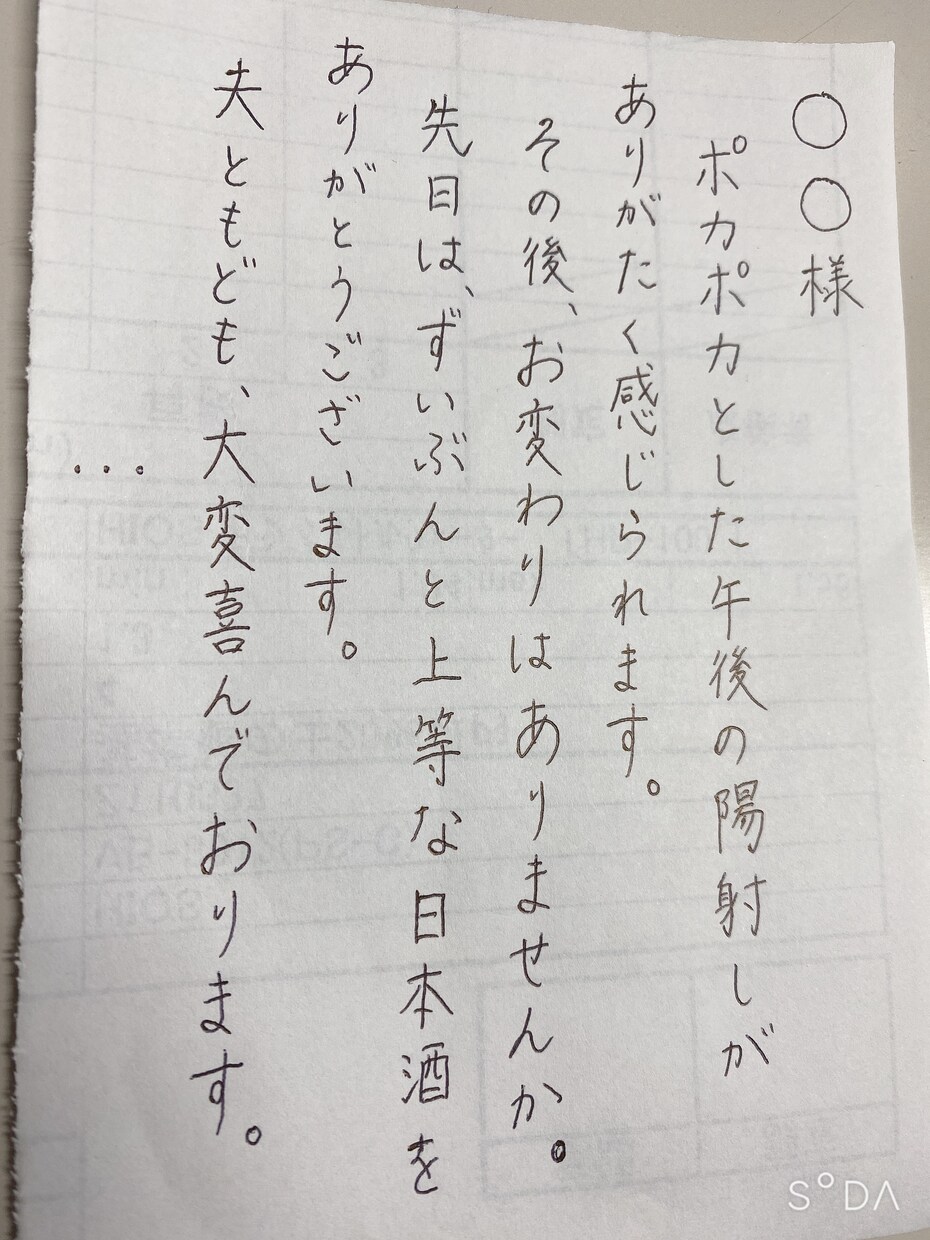 〇〇様
ポカポカとした午後の陽射しが
ありがたく感じられます。
その後、お変わりはありませんか。
先日は、ずいぶんと上等な日本酒を
ありがとうございます。
夫ともども、大変喜んでおります。
...
SODA